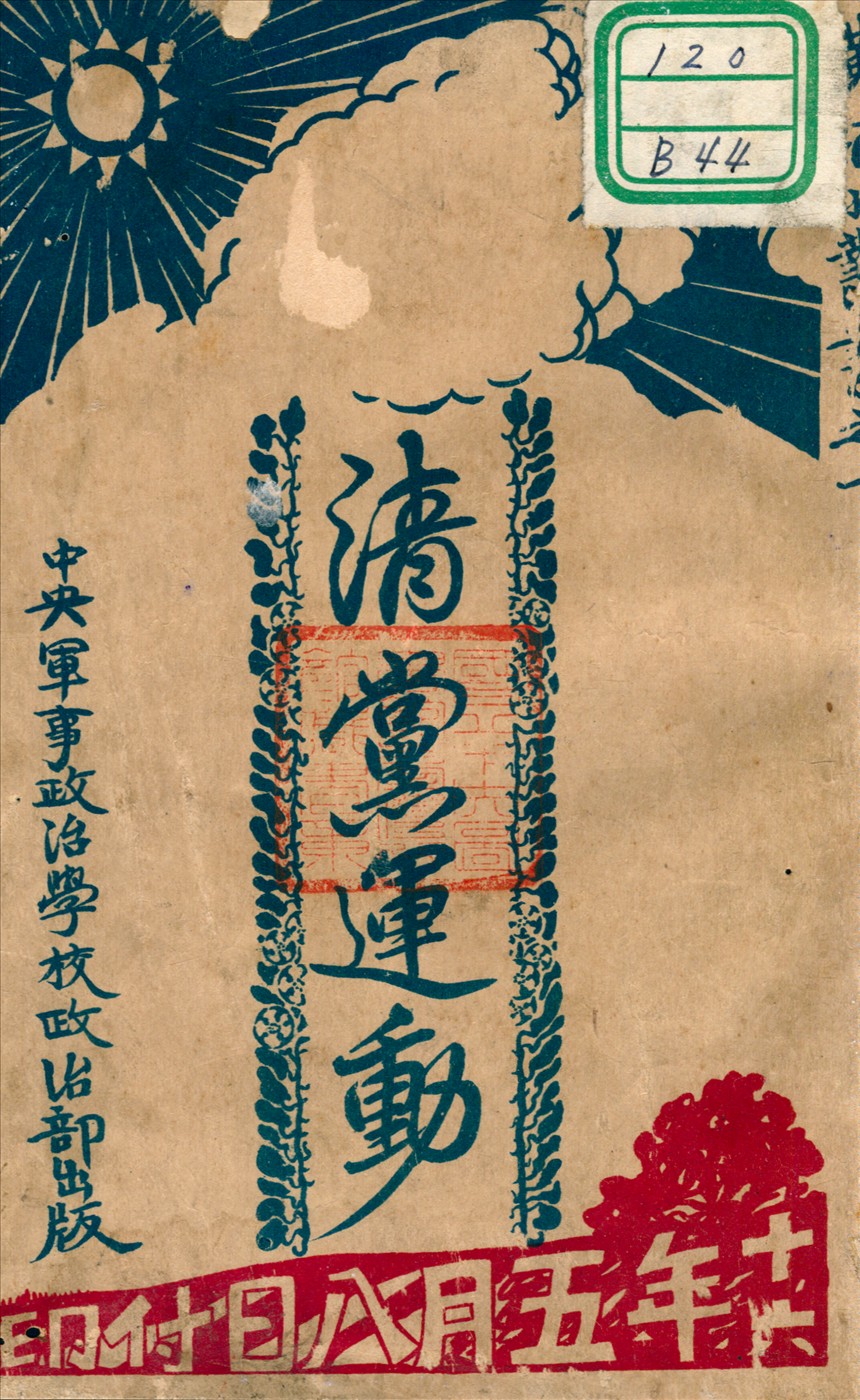 120
B44
清黨運動
中央軍事政治學校政治部出版
十六年五月八日付印